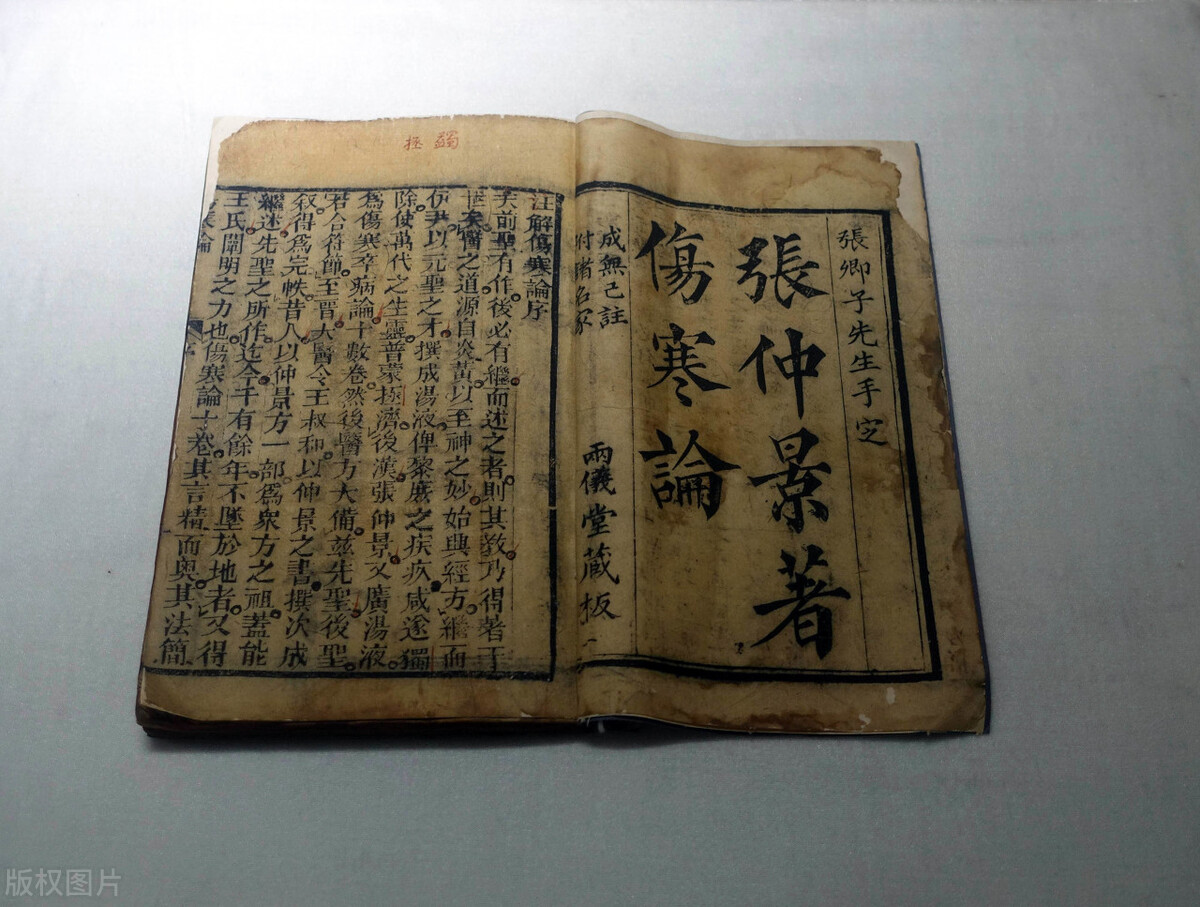 張卿子先生手定
張仲景著
傷寒論
成無己註
附諸名家
兩儀堂藏板
蠲 拯
注解傷寒論序
夫前聖有作後必有繼而述之者則其教乃得著于
世矣醫之道源自炎黃以至神之妙始興經方繼而
伊尹以元聖之才撰成湯液俾黎庶之疾疚咸遂蠲
除使萬代之生靈普蒙拯濟後漢張仲景又廣湯液
爲傷寒卒病論十數卷然後醫方大備茲先聖後聖
若合符節至晉太醫令王叔和以仲景之書撰次成
叙得爲完帙昔人以仲景方一部爲衆方之祖蓋能
繼述先聖之所作迄今千有餘年不墜於地者又得
王氏闡明之力也傷寒論十卷其言精而奧其法簡
版权图片